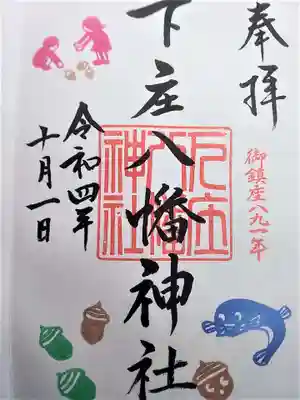 奉拝
御鎮座八九一年
下庄八幡神社
下庄八幡神社
令和四年
十月一日